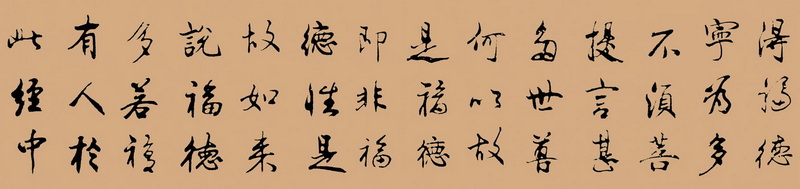 得福德
寧為多
不須菩
提言甚
多世尊
何以故
是福德
即非福
德性是
故如来
說福德
多若復
有人於
此經中